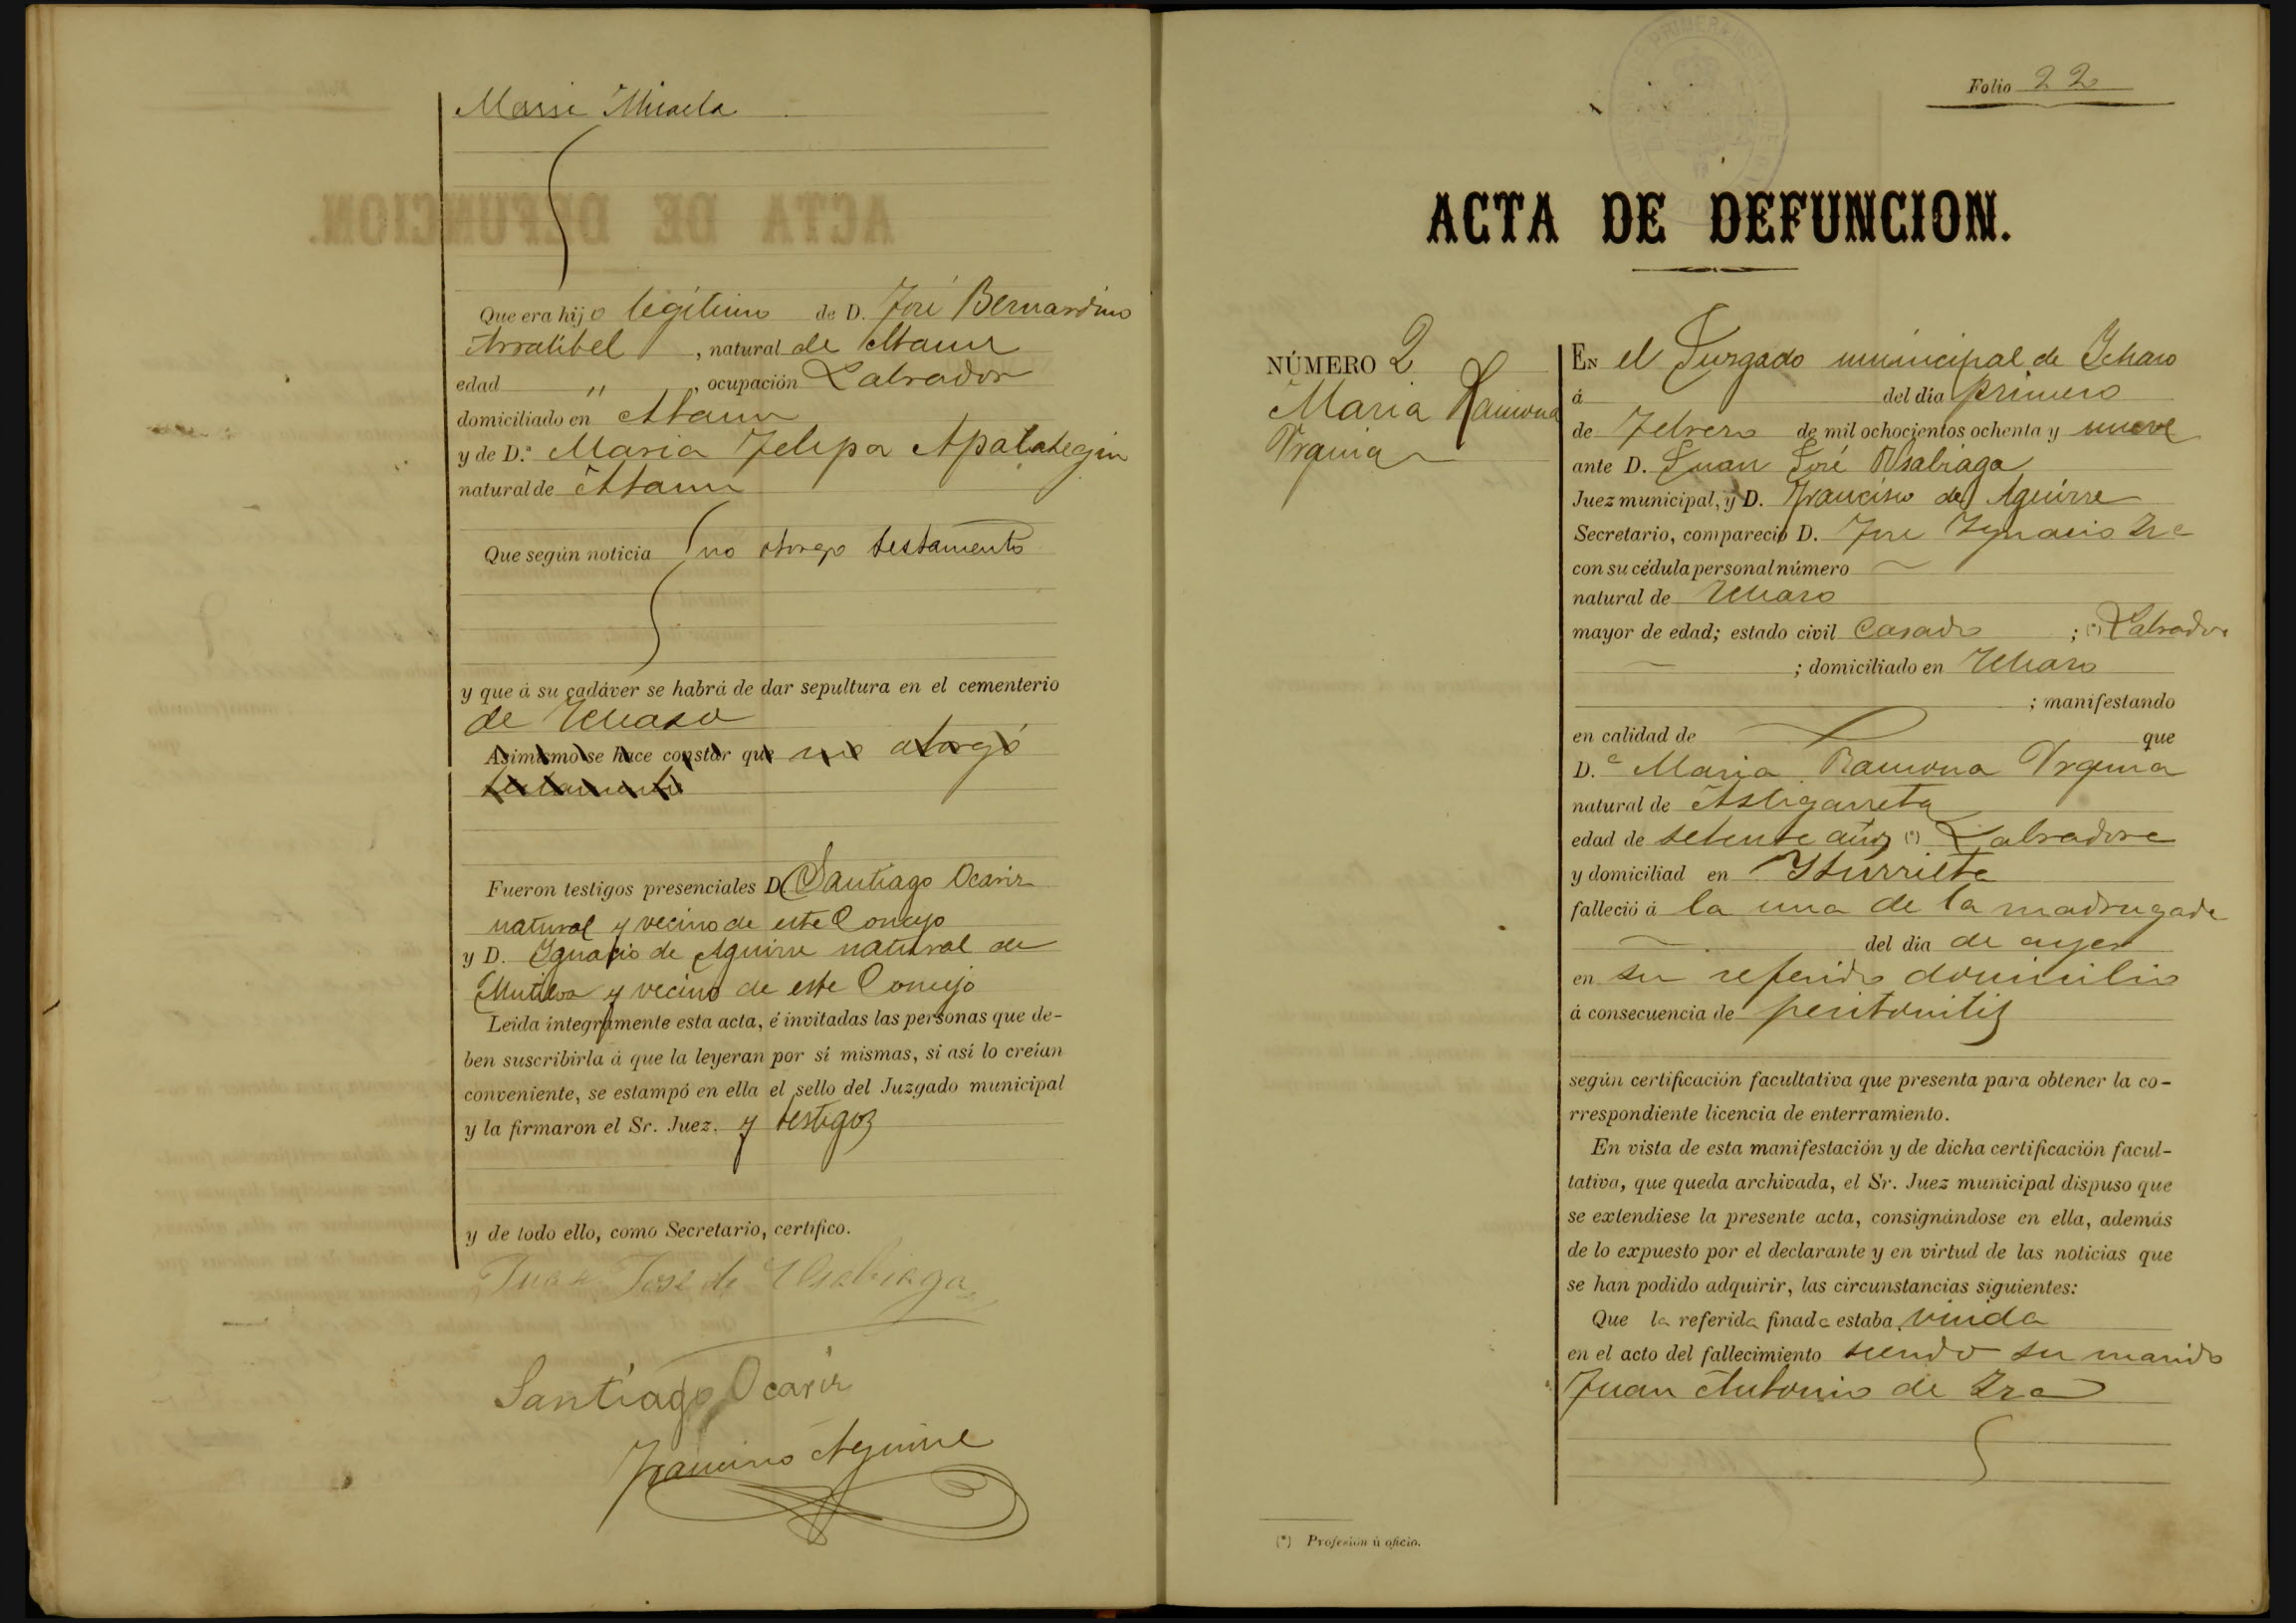 Maria Micaela
Que era hijo legítimo de D. José Bernardino
Arratibel, natural de Ataun
edad " , ocupación Labrador
domiciliado en Ataun
y de D.ª Maria Felipa Apalategui
natural de Ataun
Que según noticia no otorgo testamento
y que á su cadáver se habrá de dar sepultura en el cementerio
de Ichaso
Asimismo se hace constar que no otorgó
testamento
Fueron testigos presenciales D. Santiago Ocariz
natural y vecino de este Concejo
y D. Ignacio de Aguirre natural de
Mutiloa y vecino de este Concejo
Leida íntegramente esta acta, é invitadas las personas que de-
ben suscribirla á que la leyeran por sí mismas, si así lo creían
conveniente, se estampó en ella el sello del Juzgado municipal
y la firmaron el Sr. Juez. y testigos
y de todo ello, como Secretario, certifico.
Juan José de Usabiaga
Santiago Ocariz
Francisco Aguirre
Folio 22
ACTA DE DEFUNCION.
NÚMERO 2
Maria Ramona
Urquia
EN el Juzgado municipal de Ichaso
á del dia primero
de Febrero de mil ochocientos ochenta y nueve
ante D. Juan José Usabiaga
Juez municipal, y D. Francisco de Aguirre
Secretario, compareció D. José Ignacio
con su cédula personal número
natural de Ichaso
mayor de edad; estado civil Casado ; (*) Labrador
; domiciliado en Ichaso
; manifestando
en calidad de que
D.ª Maria Ramona Urquia
natural de Astigarreta
edad de setenta años (*) Labradora
y domiciliad en Yturrieta
falleció á la una de la madrugada
del dia de ayer
en su referido domicilio
á consecuencia de peritonitis
según certificación facultativa que presenta para obtener la co-
rrespondiente licencia de enterramiento.
En vista de esta manifestación y de dicha certificación facul-
tativa, que queda archivada, el Sr. Juez municipal dispuso que
se extendiese la presente acta, consignándose en ella, además
de lo expuesto por el declarante y en virtud de las noticias que
se han podido adquirir, las circunstancias siguientes:
Que la referida finada estaba viuda
en el acto del fallecimiento siendo su marido
Juan Antonio de
(*) Profesión ú oficio.